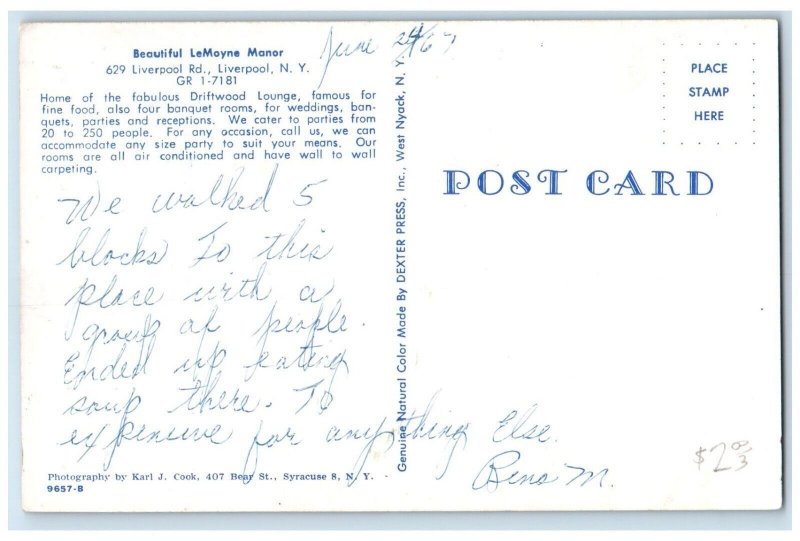 Beautiful LeMoyne Manor
629 Liverpool Rd., Liverpool, N. Y.
GR 1-7181
Home of the fabulous Driftwood Lounge, famous for
fine food, also four banquet rooms, for weddings, ban-
quets, parties and receptions. We cater to parties from
20 to 250 people. For any occasion, call us, we can
accommodate any size party to suit your means. Our
rooms are all air conditioned and have wall to wall
carpeting.
June 24/67
We walked 5
blocks To this
place with a
group of people.
Ended up eating
soup there. To
expensive for anything Else.
M.
Photography by Karl J. Cook, 407 Bear St., Syracuse 8, N. Y.
9657-B
Genuine Natural Color Made By DEXTER PRESS, Inc., West Nyack, N. Y.
PLACE
STAMP
HERE
POST CARD